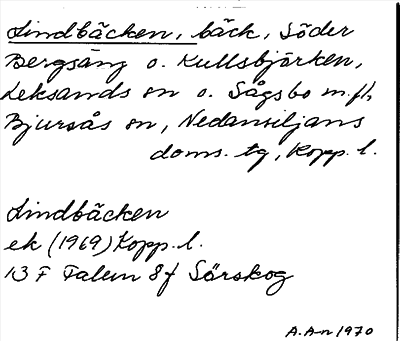 Lindbäcken, bäck, Söder
Bergsäng o. Kullsbjörken,
Leksands sn o. Sågsbo m.fl,
Bjursås sn, Nedansiljans
doms. tg, Kopp. l.
Lindbäcken
ek (1969) Kopp. l.
13 F Falun 8f Sörskog
A.A-n 1970